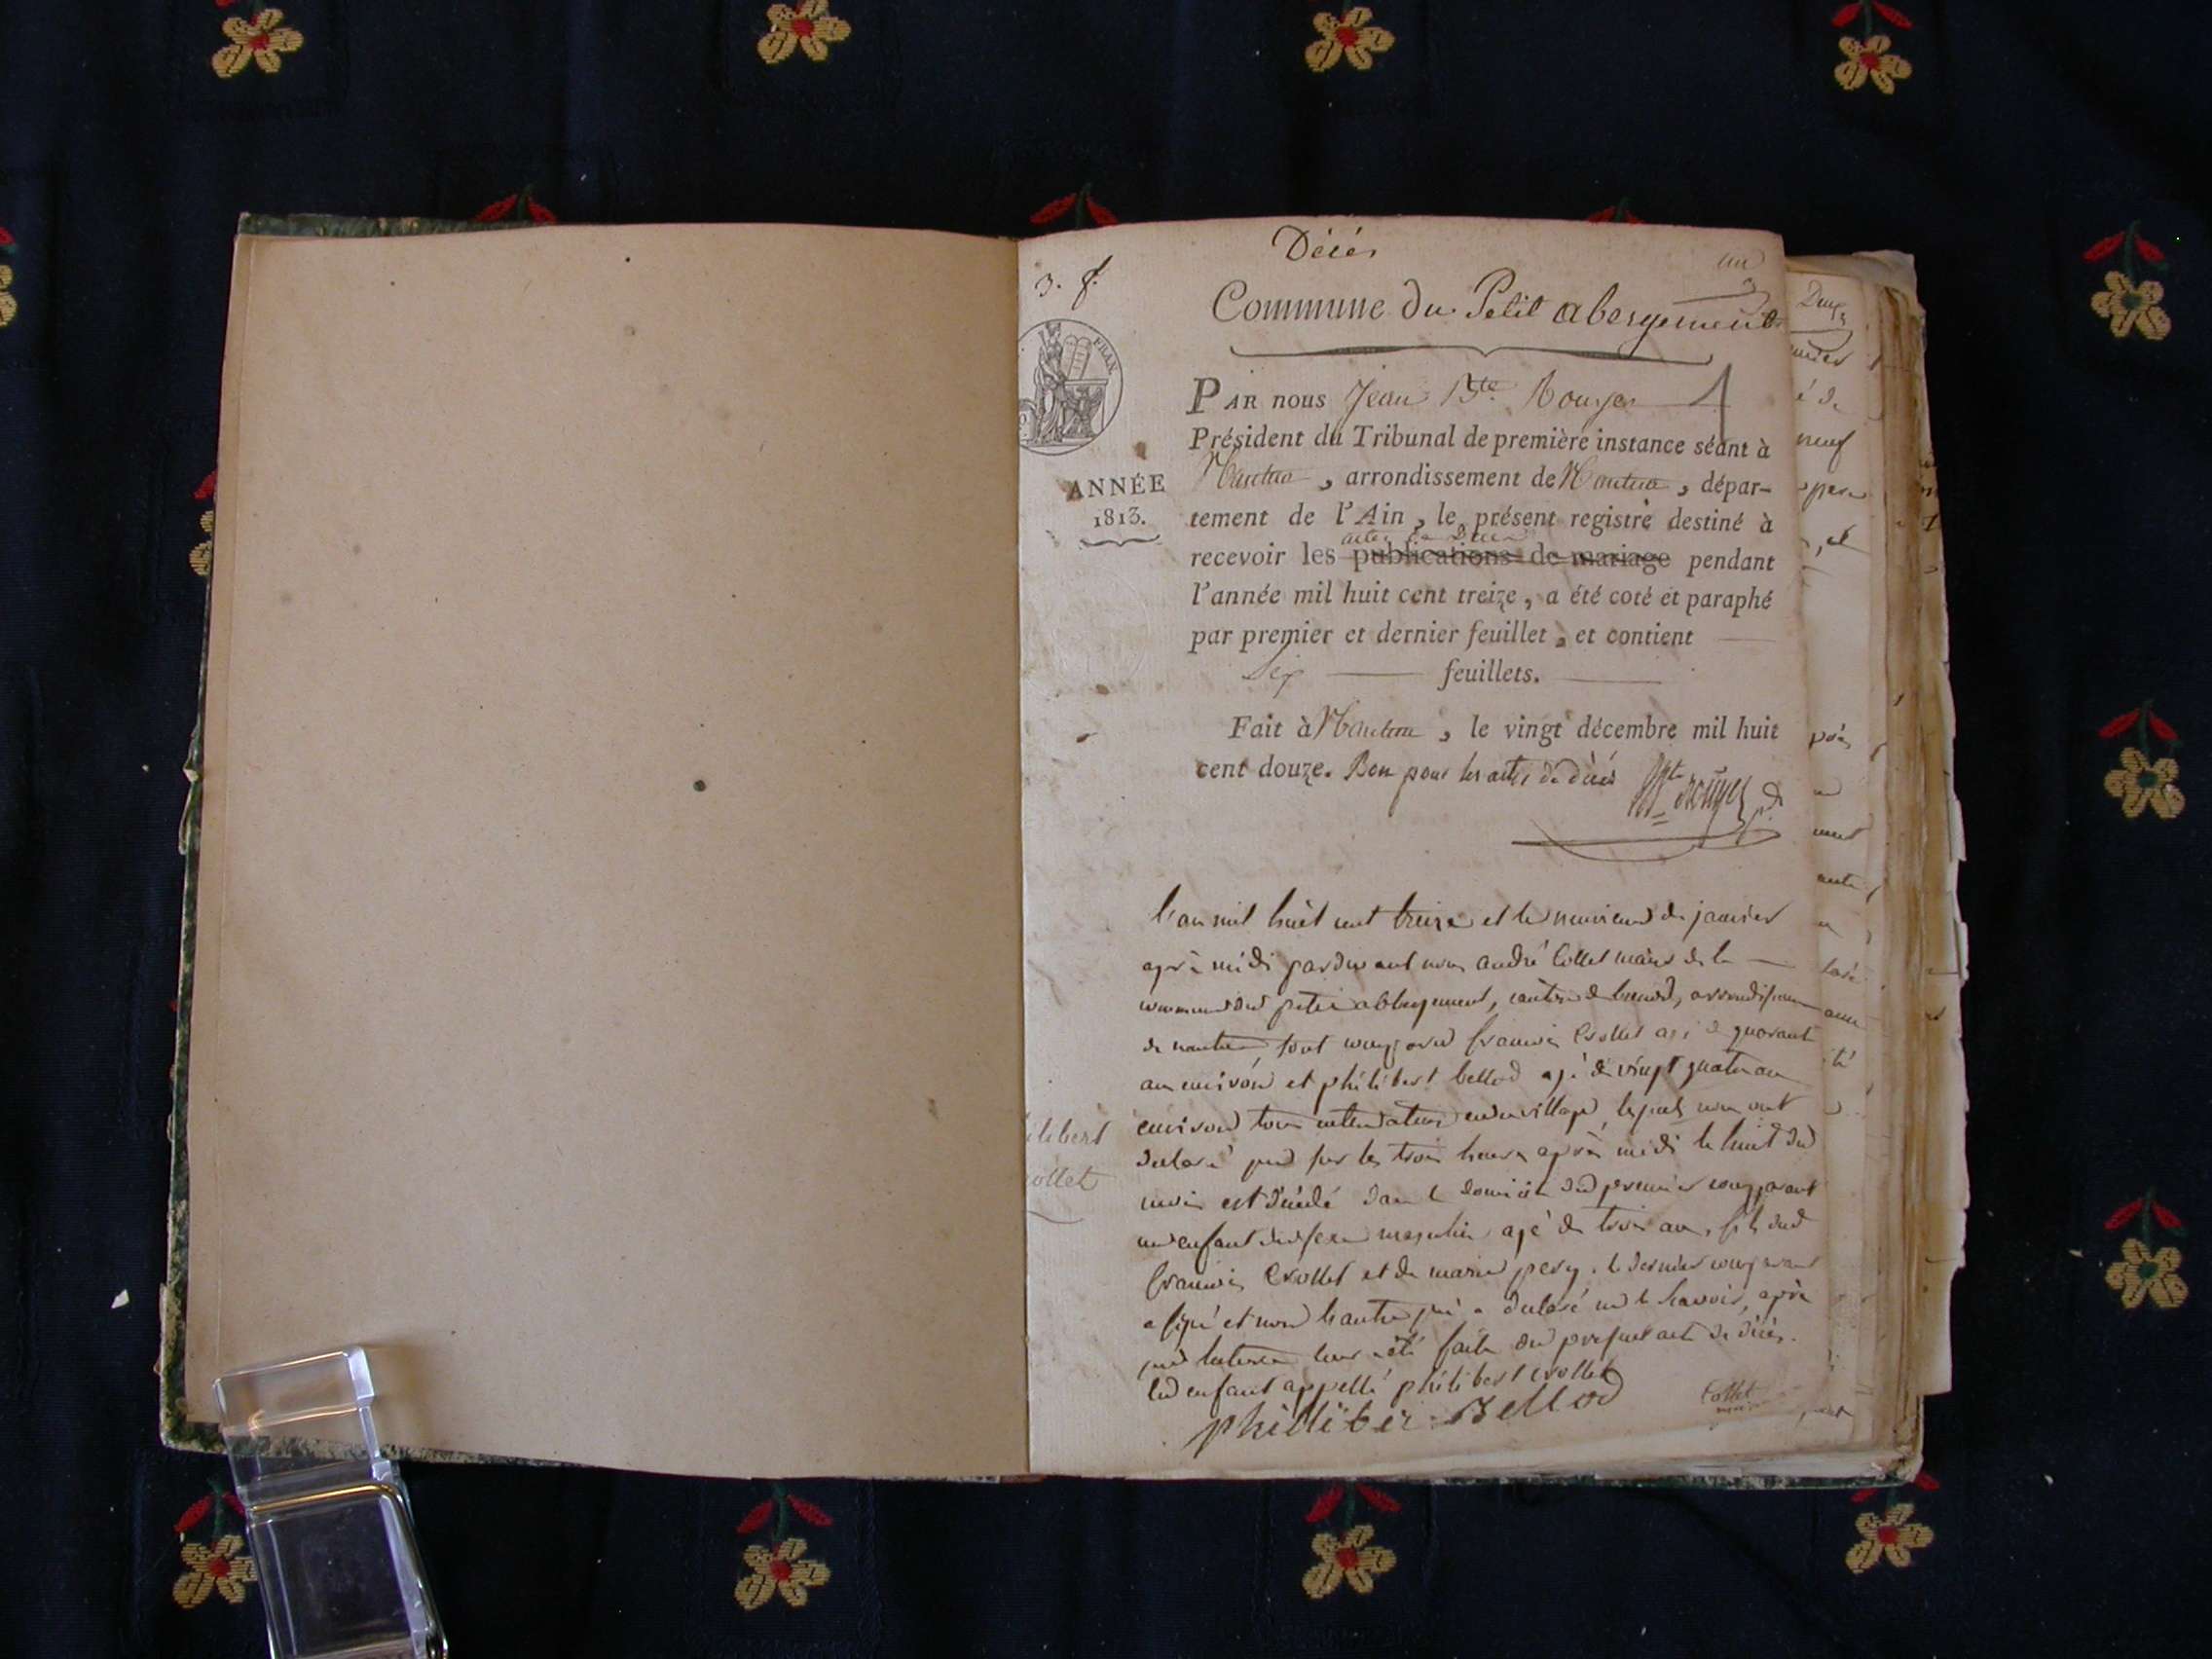 Décès
un
3. f.
Commune du Petit abergement
FRAN.
PAR nous Jean Bte. Rouyer
Président du Tribunal de première instance séant à
Nantua, arrondissement de Nantua, dépar-
ANNÉE
1813.
tement de l'Ain, le présent registre destiné à
actes de Décès
recevoir les publications de mariage pendant
l'année mil huit cent treize, a été coté et paraphé
par premier et dernier feuillet, et contient
Six feuillets.
Fait à Nantua, le vingt décembre mil huit
cent douze. Bon pour les actes de décès
Bte Rouyer
l'an mil huit cent treize et le neuvieme de janvier
après midi pardevant nous andré Collet maire de la
commune du petit abbergement, canton de brenod,
de nantua, sont comparus françois Crollet agé de quarante
an environ et philibert bellod agé de vingt quatre an
environ tous cultivateurs en ce village, lesquels nous ont
declaré que sur les trois heures après midi le huit du
mois est décédé dans le domicile du premier comparant
un enfant du sexe masculin agé de trois an, fils dud
françois Crollet et de marie pery. le dernier comparant
a signé et non l'autre qui a declaré ne le scavoir, après
que lecture leur a été faite du present acte de décès.
led enfant appellé philibert crollet
ilibert
rollet
philliber Bellod
Collet
maire
Deux
neuf